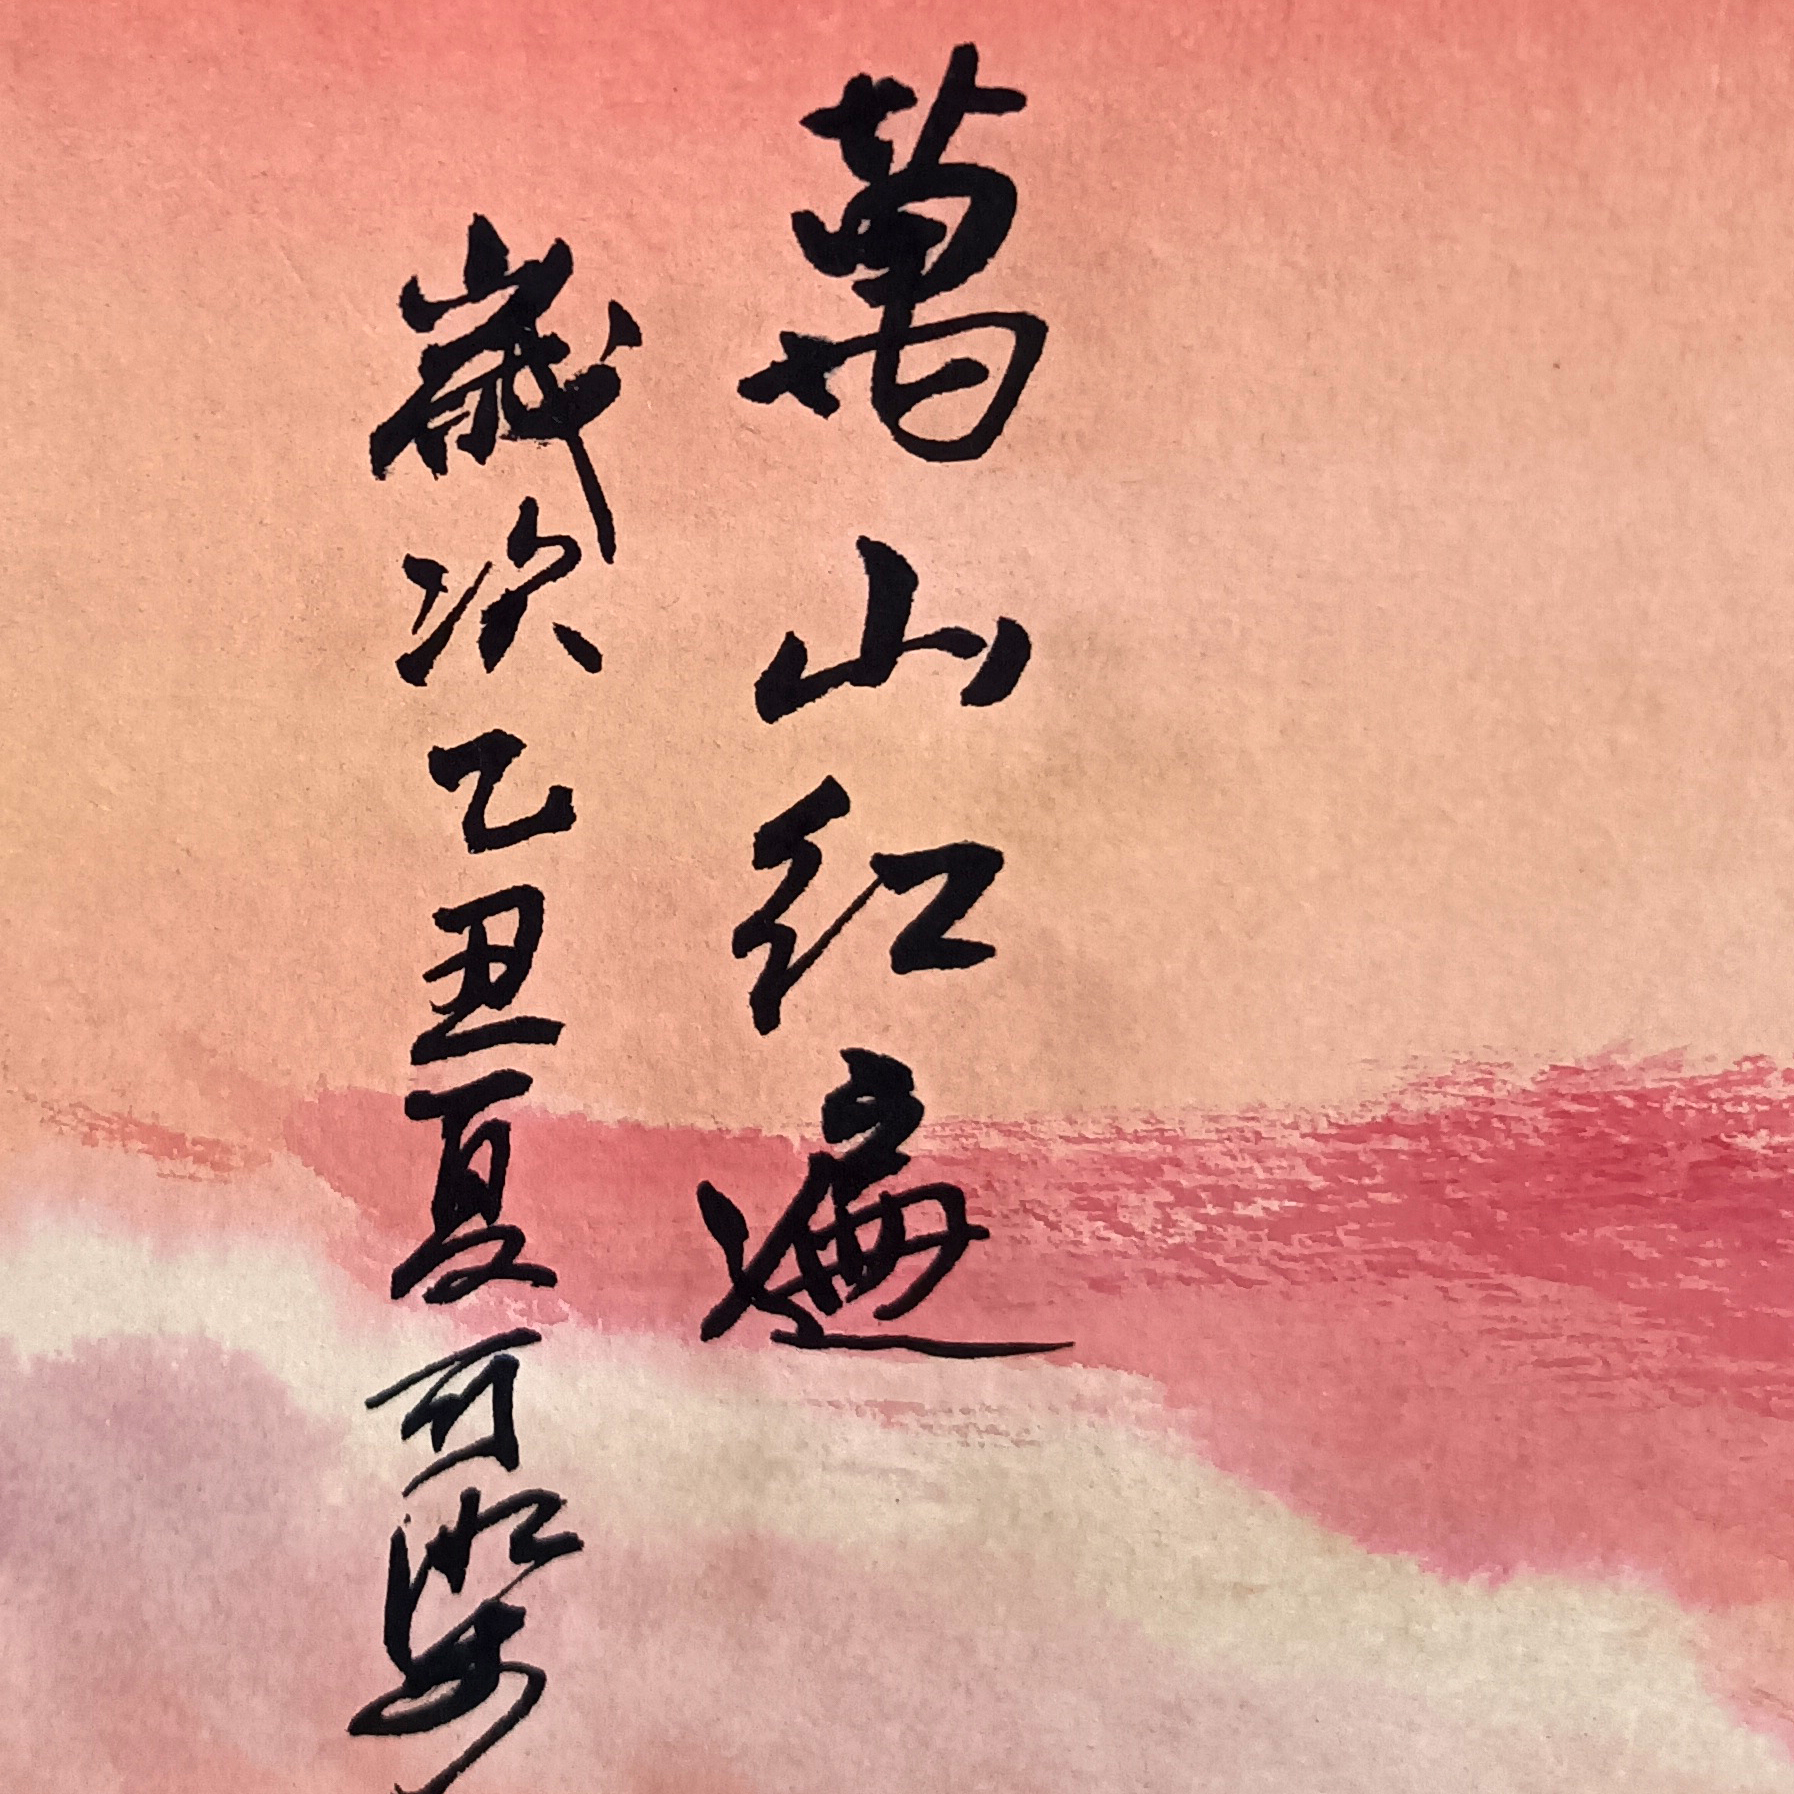 萬山红遍
歲次乙丑夏可